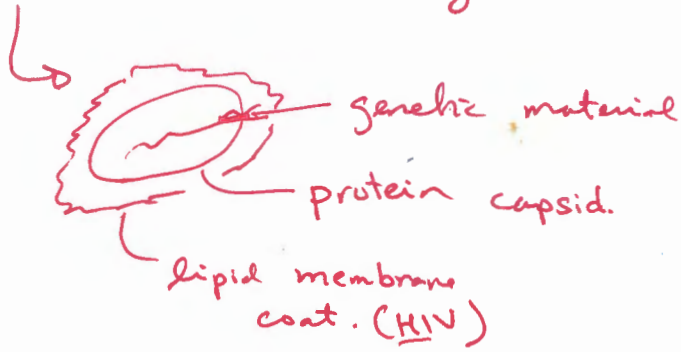 genetic material
protein capsid.
lipid membrane
coat. (HIV)